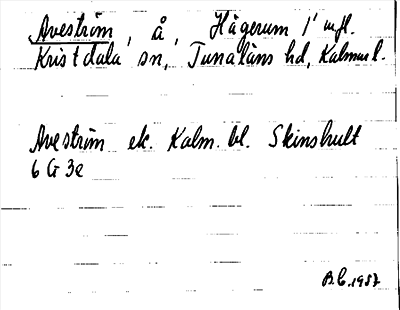 Aveström, å, Hägerum 1' mfl.
Kristdala sn, Tunaläns hd, Kalmar l.
Aveström ek. Kalm. bl. Skinshult
6 G 3e
B.C. 1957